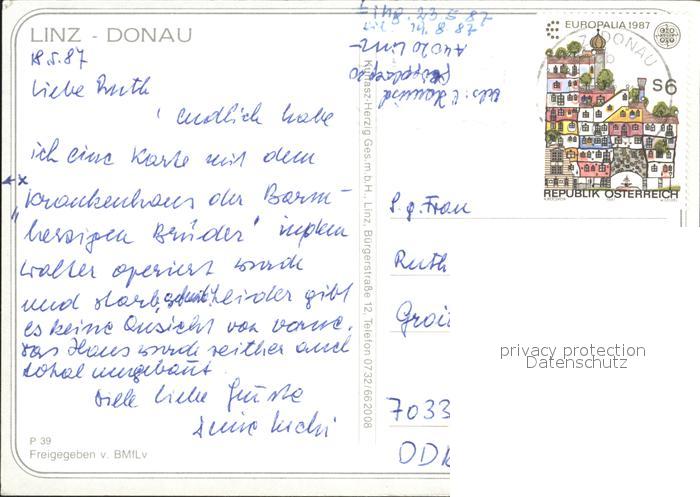 LINZ - DONAU
18.5.87
Liebe Ruth
endlich habe
ich eine Karte mit dem
"Krankenhaus der Barm-
herzigen Brüder" in dem
Walter operiert wurde
und starb, leider gibt
es keine Ansicht von vorne.
Das Haus wurde seither auch
total umgebaut.
Viele liebe Grüsse
Deine
P 39
Freigegeben v. BMfLv
Kunasz-Herzig Ges.m.b.H., Linz, Bürgerstraße 12, Telefon 0732/662008
23.5.87
14.8.87
A 4020 Linz
EUROPALIA 1987
DONAU
S6
REPUBLIK ÖSTERREICH
S.g. Frau
Ruth
7033
privacy protection
Datenschutz